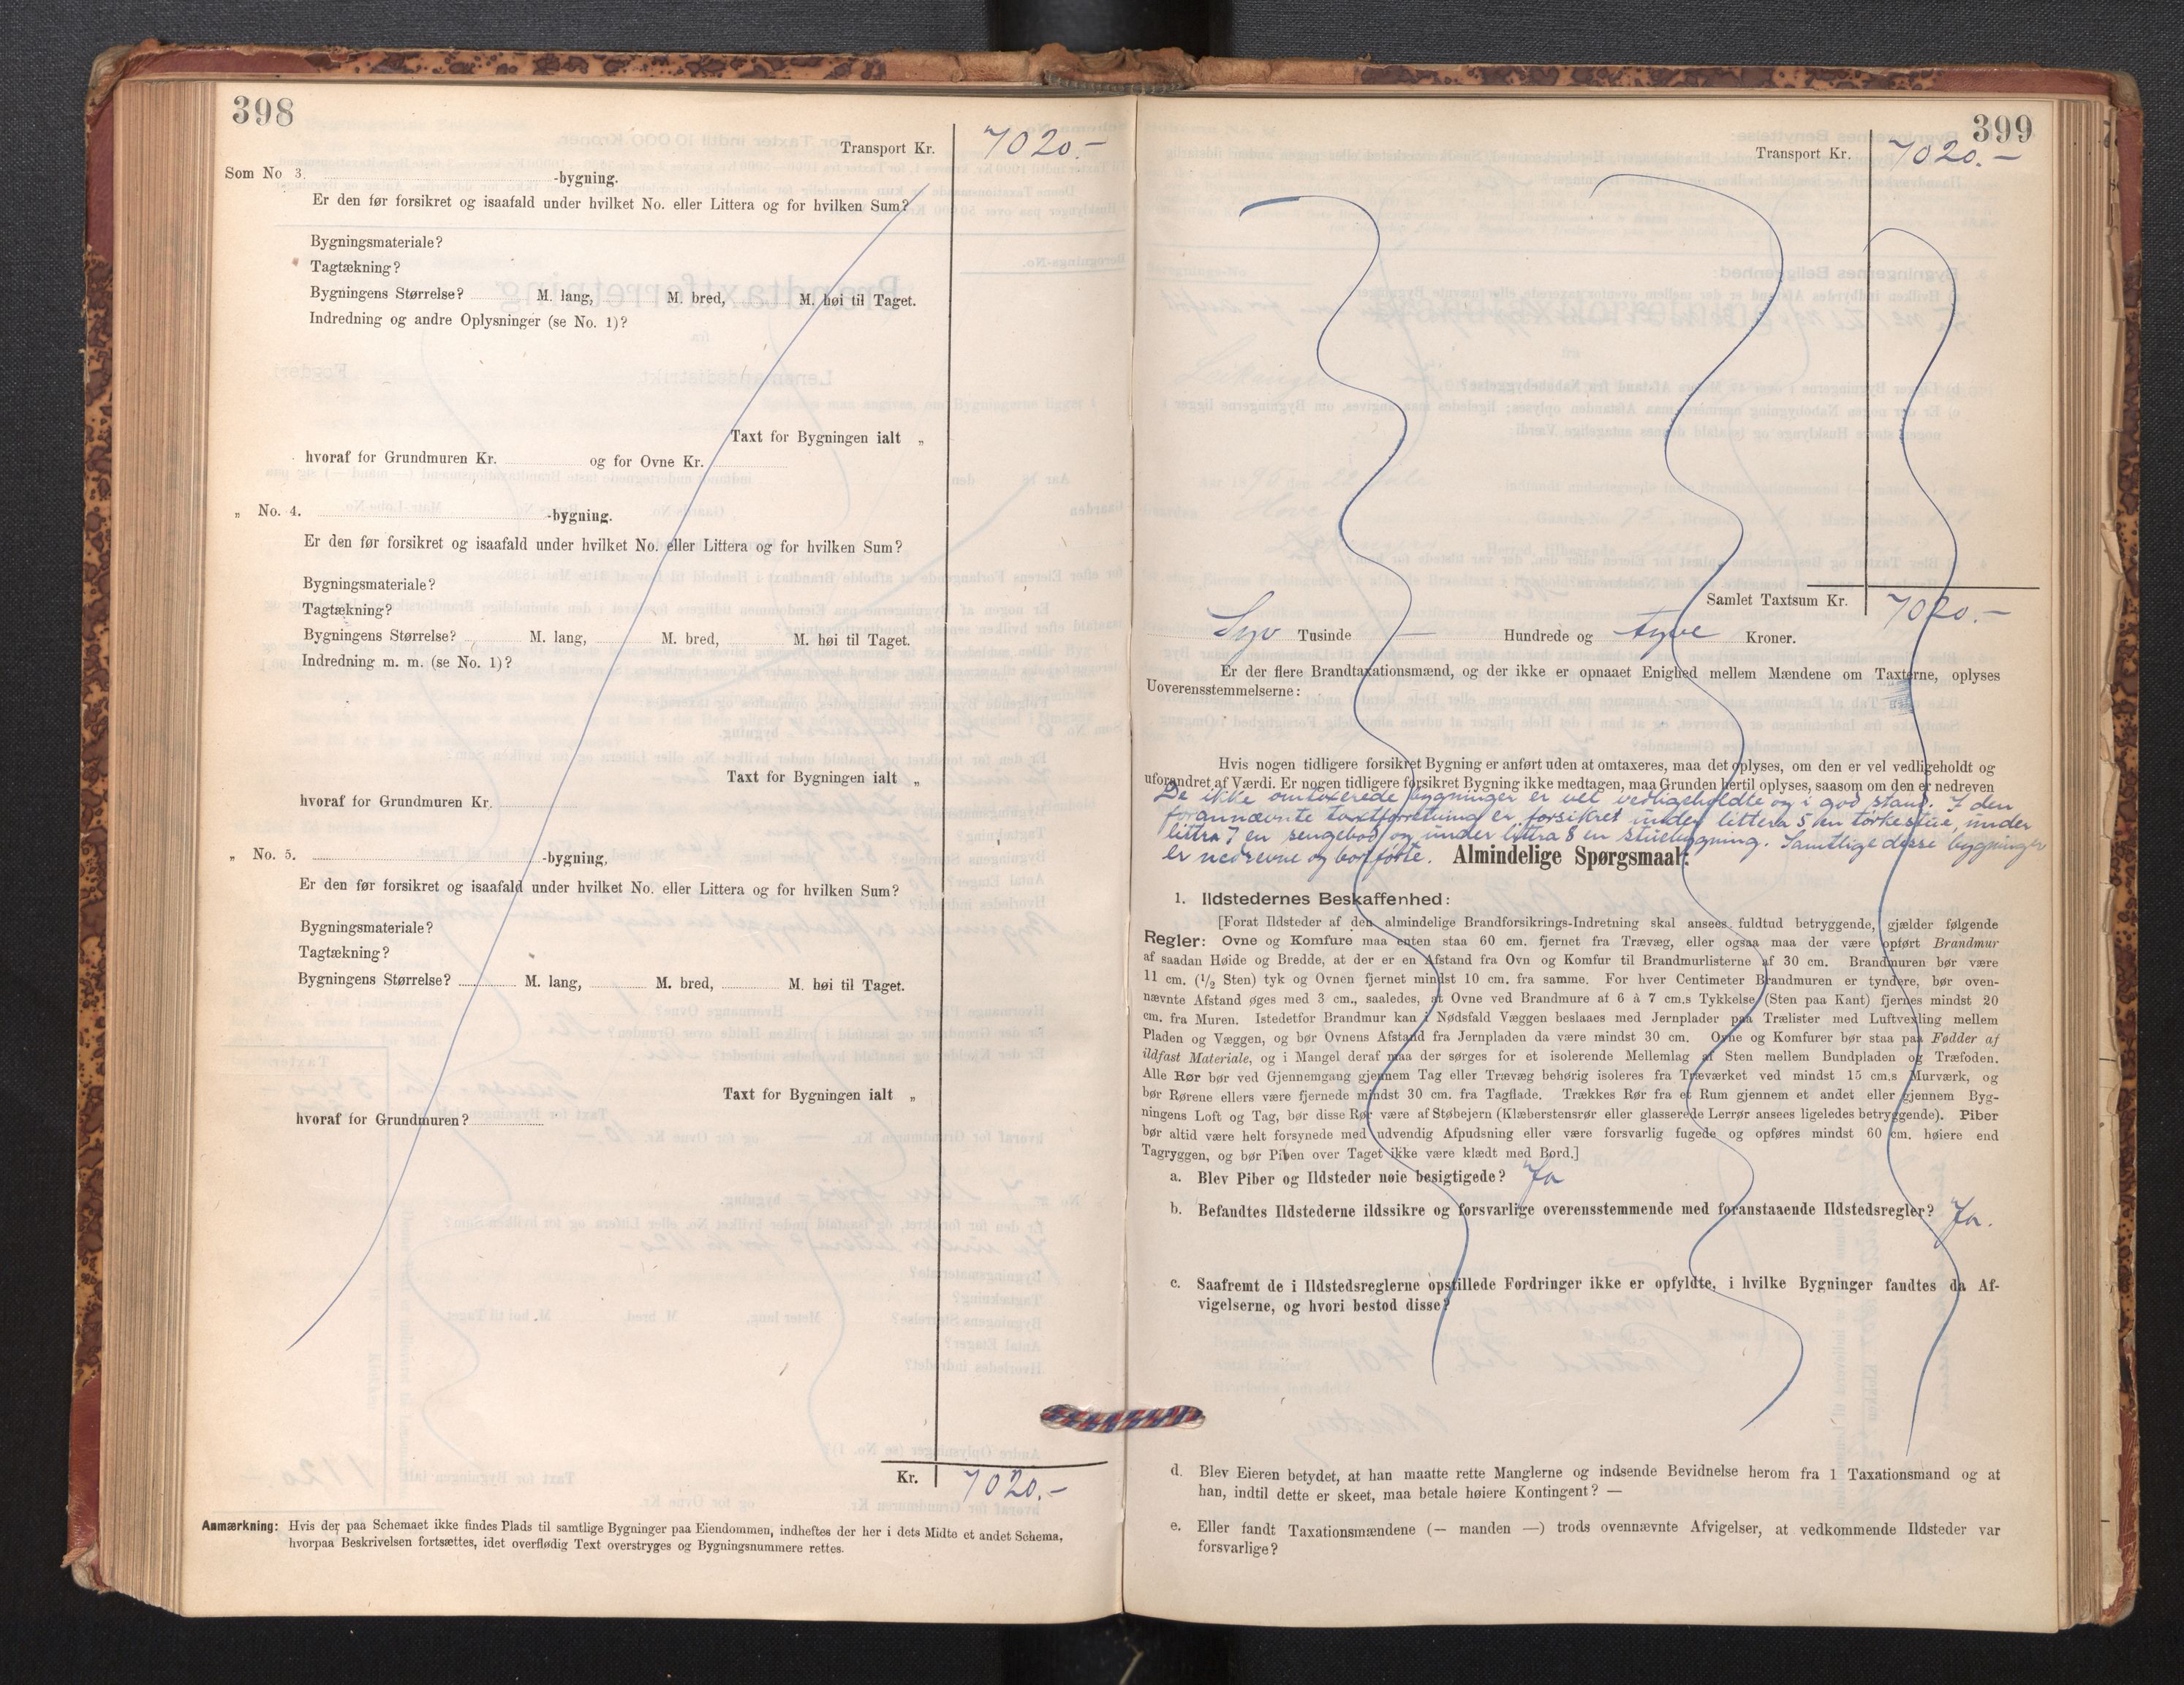 398
Transport Kr. 7020.-
Som No 3. -bygning.
Er den før forsikret og isaafald under hvilket No. eller Littera og for hvilken Sum?
Bygningsmateriale?
Tagtækning?
Bygningens Størrelse? M. lang, M. bred, M. høi til Taget.
Indredning og andre Oplysninger (se No. 1)?
Taxt for Bygningen ialt „
hvoraf for Grundmuren Kr. og for Ovne Kr.
„ No. 4. -bygning.
Er den før forsikret og isaafald under hvilket No. eller Littera og for hvilken Sum?
Bygningsmateriale?
Tagtækning?
Bygningens Størrelse? M. lang, M. bred, M. høi til Taget.
Indredning m. m. (se No. 1)?
Taxt for Bygningen ialt „
hvoraf for Grundmuren Kr.
„ No. 5. -bygning,
Er den før forsikret og isaafald under hvilket No. eller Littera og for hvilken Sum?
Bygningsmateriale?
Tagtækning?
Bygningens Størrelse? M. lang, M. bred, M. høi til Taget.
Taxt for Bygningen ialt „
hvoraf for Grundmuren?
Kr. 7020.-
Anmærkning: Hvis der paa Schemaet ikke findes Plads til samtlige Bygninger paa Eiendommen, indheftes der her i dets Midte et andet Schema,
hvorpaa Beskrivelsen fortsættes, idet overflødig Text overstryges og Bygningsnummere rettes.
399
Transport Kr. 7020.-
Samlet Taxtsum Kr. 7020.-
Syv Tusinde — Hundrede og tyve Kroner.
Er der flere Brandtaxationsmænd, og der ikke er opnaaet Enighed mellem Mændene om Taxterne, oplyses
Uoverensstemmelserne:
Hvis nogen tidligere forsikret Bygning er anført uden at omtaxeres, maa det oplyses, om den er vel vedligeholdt og
uforandret af Værdi. Er nogen tidligere forsikret Bygning ikke medtagen, maa Grunden hertil oplyses, saasom om den er nedreven
De ikke omtaxerede bygninger er vel vedligeholdte og i god stand. I den
forannævnte taxtforretning er forsikret under littera 5 en tørkestue, under
littra 7 en sengebod og under littra 8 en stuebygning. Samtlige disse bygninger
er nedrevne og bortførte. Almindelige Spørgsmaal:
1. Ildstedernes Beskaffenhed:
[Forat Ildsteder af den almindelige Brandforsikrings-Indretning skal ansees fuldtud betryggende, gjælder følgende
Regler: Ovne og Komfure maa enten staa 60 cm. fjernet fra Trævæg, eller ogsaa maa der være opført Brandmur
af saadan Høide og Bredde, at der er en Afstand fra Ovn og Komfur til Brandmurlisterne af 30 cm. Brandmuren bør være
11 cm. (1/2 Sten) tyk og Ovnen fjernet mindst 10 cm. fra samme. For hver Centimeter Brandmuren er tyndere, bør oven-
nævnte Afstand øges med 3 cm., saaledes, at Ovne ved Brandmure af 6 à 7 cm.s Tykkelse (Sten paa Kant) fjernes mindst 20
cm. fra Muren. Istedetfor Brandmur kan i Nødsfald Væggen beslaaes med Jernplader paa Trælister med Luftvexling mellem
Pladen og Væggen, og bør Ovnens Afstand fra Jernpladen da være mindst 30 cm. Ovne og Komfurer bør staa paa Fødder af
ildfast Materiale, og i Mangel deraf maa der sørges for et isolerende Mellemlag af Sten mellem Bundpladen og Træfoden.
Alle Rør bør ved Gjennemgang gjennem Tag eller Trævæg behørig isoleres fra Træværket ved mindst 15 cm.s Murværk, og
bør Rørene ellers være fjernede mindst 30 cm. fra Tagflade. Trækkes Rør fra et Rum gjennem et andet eller gjennem Byg-
ningens Loft og Tag, bør disse Rør være af Støbejern (Klæberstensrør eller glasserede Lerrør ansees ligeledes betryggende). Piber
bør altid være helt forsynede med udvendig Afpudsning eller være forsvarlig fugede og opføres mindst 60 cm. høiere end
Tagryggen, og bør Piben over Taget ikke være klædt med Bord.]
a. Blev Piber og Ildsteder nøie besigtigede? Ja
b. Befandtes Ildstederne ildssikre og forsvarlige overensstemmende med foranstaaende Ildstedsregler? Ja.
c. Saafremt de i Ildstedsreglerne opstillede Fordringer ikke er opfyldte, i hvilke Bygninger fandtes da Af-
vigelserne, og hvori bestod disse?
d. Blev Eieren betydet, at han maatte rette Manglerne og indsende Bevidnelse herom fra 1 Taxationsmand og at
han, indtil dette er skeet, maa betale høiere Kontingent? —
e. Eller fandt Taxationsmændene (— manden —) trods ovennævnte Afvigelser, at vedkommende Ildsteder var
forsvarlige?